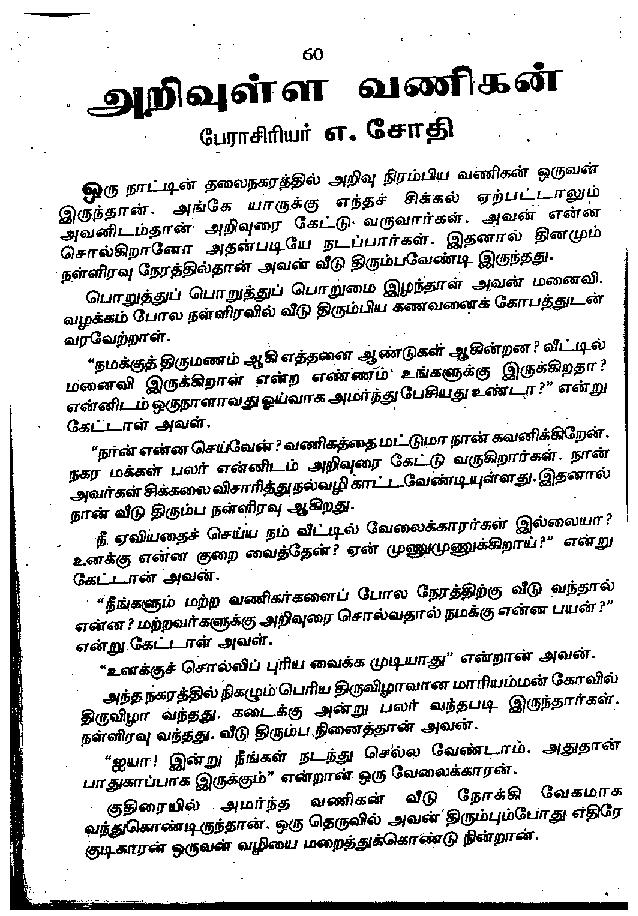 60
அறிவுள்ள வணிகன்
பேராசிரியர் எ. சோதி
ஒரு நாட்டின் தலைநகரத்தில் அறிவு நிரம்பிய வணிகன் ஒருவன்
இருந்தான். அங்கே யாருக்கு எந்தச் சிக்கல் ஏற்பட்டாலும்
அவனிடம்தான் அறிவுரை கேட்டு வருவார்கள். அவன் என்ன
சொல்கிறானோ அதன்படியே நடப்பார்கள். இதனால் தினமும்
நள்ளிரவு நேரத்தில்தான் அவன் வீடு திரும்பவேண்டி இருந்தது.
பொறுத்துப் பொறுத்துப் பொறுமை இழந்தான் அவன் மனைவி.
வழக்கம் போல நள்ளிரவில் வீடு திரும்பிய கணவனைக் கோபத்துடன்
வரவேற்றாள்.
“நமக்குத் திருமணம் ஆகி எத்தனை ஆண்டுகள் ஆகின்றன? வீட்டில்
மனைவி இருக்கிறாள் என்ற எண்ணம் உங்களுக்கு இருக்கிறதா?
என்னிடம் ஒருநாளாவது ஓய்வாக அமர்ந்து பேசியது உண்டா?” என்று
கேட்டாள் அவள்.
“நான் என்ன செய்வேன்? வணிகத்தை மட்டுமா நான் கவனிக்கிறேன்.
நகர மக்கள் பலர் என்னிடம் அறிவுரை கேட்டு வருகிறார்கள். நான்
அவர்கள் சிக்கலை விசாரித்து நல்வழி காட்டவேண்டியுள்ளது. இதனால்
நான் வீடு திரும்ப நள்ளிரவு ஆகிறது.
நீ ஏவியதைச் செய்ய நம் வீட்டில் வேலைக்காரர்கள் இல்லையா?
உனக்கு என்ன குறை வைத்தேன்? ஏன் முணுமுணுக்கிறாய்?” என்று
கேட்டான் அவன்.
“நீங்களும் மற்ற வணிகர்களைப் போல நேரத்திற்கு வீடு வந்தால்
என்ன? மற்றவர்களுக்கு அறிவுரை சொல்வதால் நமக்கு என்ன பயன்?”
என்று கேட்டாள் அவள்.
“உனக்குச் சொல்லிப் புரிய வைக்க முடியாது” என்றான் அவன்.
அந்த நகரத்தில் நிகழும் பெரிய திருவிழாவான மாரியம்மன் கோவில்
திருவிழா வந்தது. கடைக்கு அன்று பலர் வந்தபடி இருந்தார்கள்.
நள்ளிரவு வந்தது. வீடு திரும்ப நினைத்தான் அவன்.
“ஐயா! இன்று நீங்கள் நடந்து செல்ல வேண்டாம். அதுதான்
பாதுகாப்பாக இருக்கும்” என்றான் ஒரு வேலைக்காரன்.
குதிரையில் அமர்ந்த வணிகன் வீடு நோக்கி வேகமாக
வந்துகொண்டிருந்தான். ஒரு தெருவில் அவன் திரும்பும்போது எதிரே
குடிகாரன் ஒருவன் வழியை மறைத்துக்கொண்டு நின்றான்.